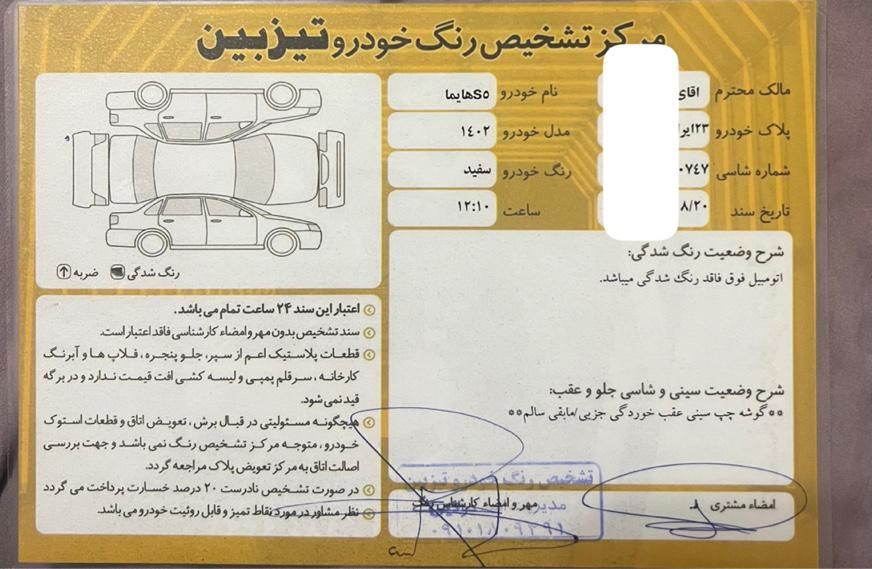 مرکز تشخیص رنگ خودرو تیزبین
مالک محترم اقای
نام خودرو هایما S5
پلاک خودرو ۲۳ایر
مدل خودرو ۱۴۰۲
شماره شاسی ۰۷۴۷
رنگ خودرو سفید
تاریخ سند ۸/۲۰
ساعت ۱۲:۱۰
شرح وضعیت رنگ شدگی:
اتومبیل فوق فاقد رنگ شدگی میباشد.
شرح وضعیت سینی و شاسی جلو و عقب:
**گوشه چپ سینی عقب خوردگی جزیی/مابقی سالم**
امضاء مشتری
مهر و امضاء کارشناس رنگ
تشخیص رنگ خودرو تیزبین
رنگ شدگی
ضربه
اعتبار این سند ۲۴ ساعت تمام می باشد.
سند تشخیص بدون مهر و امضاء کارشناسی فاقد اعتبار است.
قطعات پلاستیک اعم از سپر، جلو پنجره، فلاپ ها و آبرنگ
کارخانه، سرقلم پمپی و لیسه کشی افت قیمت ندارد و در برگه
قید نمی شود.
هیچگونه مسئولیتی در قبال برش، تعویض اتاق و قطعات استوک
خودرو، متوجه مرکز تشخیص رنگ نمی باشد و جهت بررسی
اصالت اتاق به مرکز تعویض پلاک مراجعه گردد.
در صورت تشخیص نادرست ۲۰ درصد خسارت پرداخت می گردد
نظر مشاور در مورد نقاط تمیز و قابل روئیت خودرو می باشد.